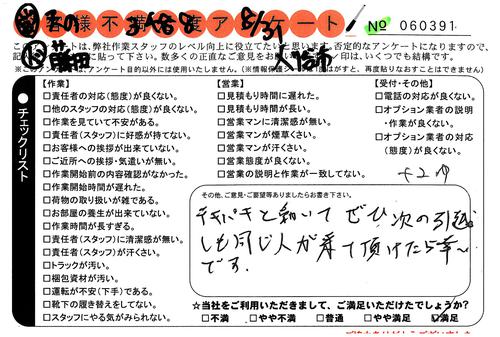 お客様不満足度アンケート！
№ 060391
このアンケートは、弊社作業スタッフのレベル向上に役立てたいと思います。否定的なアンケートになりますので、
いくつでも結構です。
●チェックリスト
【作業】
□責任者の対応(態度)が良くない。
□他のスタッフの対応(態度)が良くない。
□作業を見ていて不安がある。
□責任者(スタッフ)に好感が持てない。
□お客様への挨拶が出来ていない。
□ご近所への挨拶・気遣いが無い。
□作業開始前の内容確認がなかった。
□作業開始時間が遅れた。
□荷物の取り扱いが雑である。
□お部屋の養生が出来ていない。
□作業時間が長すぎる。
□責任者(スタッフ)に清潔感が無い。
□責任者(スタッフ)が汗くさい。
□トラックが汚い。
□梱包資材が汚い。
□運転が不安(下手)である。
□靴下の履き替えをしてない。
□スタッフにやる気がみられない。
【営業】
□見積もり時間に遅れた。
□見積もり時間が長い。
□営業マンに清潔感が無い。
□営業マンが煙草くさい。
□営業マンが汗くさい。
□営業態度が良くない。
□営業の説明と作業が一致してない。
【受付・その他】
□電話の対応が良くない。
□オプション業者の説明
・作業が良くない。
□オプション業者の対応
(態度)が良くない。
その他、ご意見・ご要望等ありましたらお書き下さい。
テキパキと動いて ぜひ 次の引越
しも同じ人が来て頂けたら幸い
です。
☆当社をご利用いただきまして、ご満足いただけたでしょうか?
□不満 □やや不満 □普通 □やや満足 ☑満足